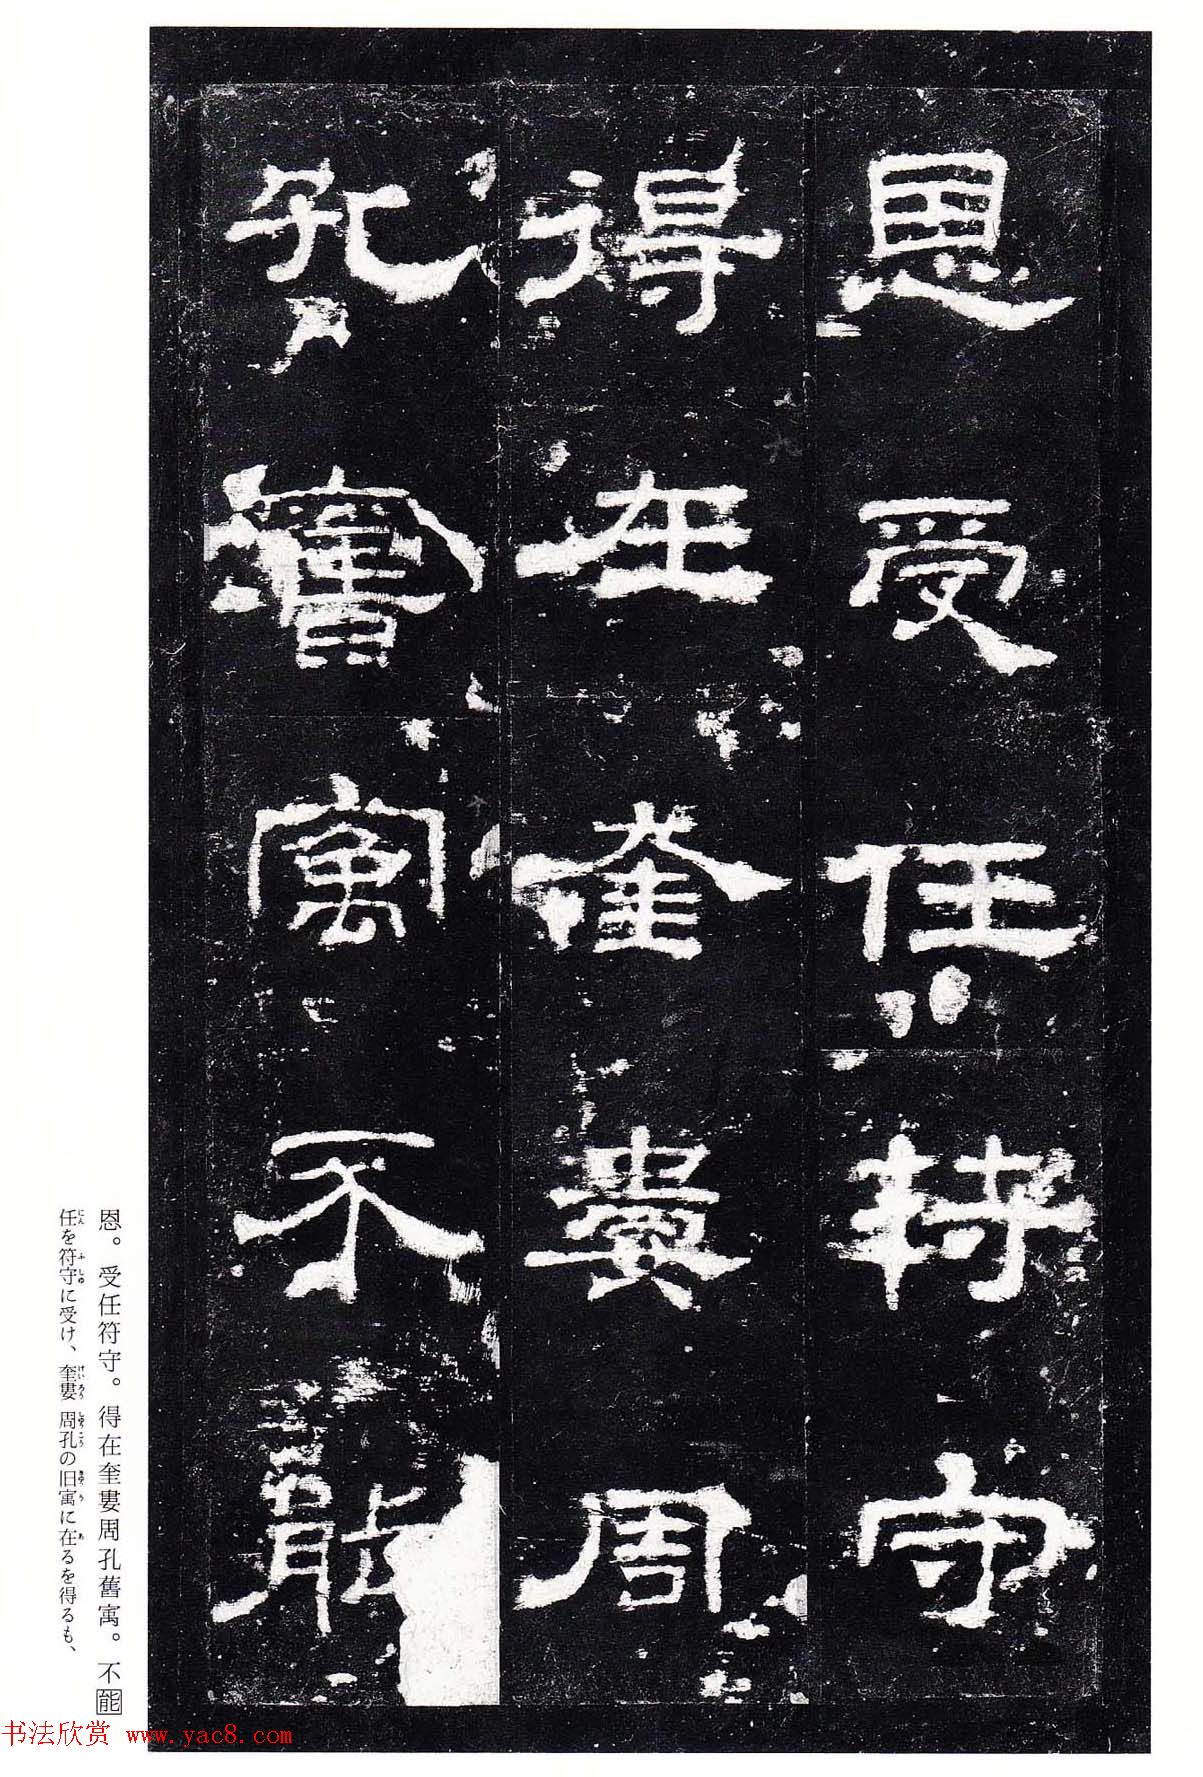 恩受任符守
得在奎婁周
孔舊寓不能
恩。受任符守。得在奎婁周孔舊寓。不能
任を符守に受け、奎婁周孔の旧寓に在るを得るも、
书法欣赏 www.yac8.com